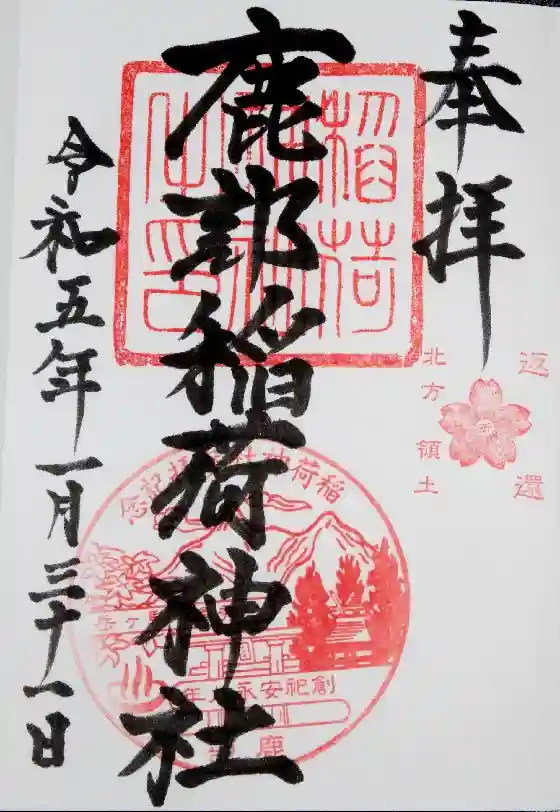 奉拝
返還
北方領土
鹿部稲荷神社
稲荷
令和五年一月三十一日
稲荷神社
記念
創祀安永
年
鹿